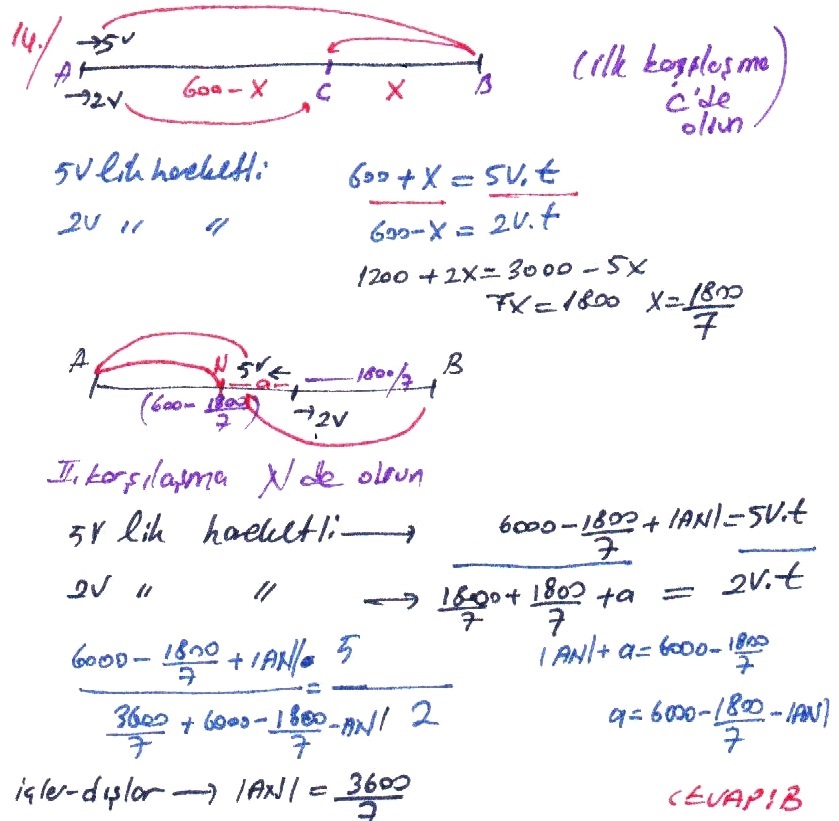 14./
→5V
A 600-X C X B
→2V
(ilk karşılaşma
C'de
olsun)
5V lik hareketli 600+X = 5V.t
2V 〃 〃 600-X = 2V.t
1200+2X=3000-5X
7X=1800 X=1800/7
A N 5V← 1800/7 B
a
(600-1800/7) →2V
II. karşılaşma N de olsun
5V lik hareketli → 6000-1800/7+|AN|=5V.t
2V 〃 〃 → 1800/7+1800/7+a = 2V.t
(6000-1800/7+|AN|)/(3600/7+6000-1800/7-AN|) = 5/2
|AN|+a=6000-1800/7
a=6000-1800/7-|AN|
içler-dışlar → |AN| = 3600/7
CEVAP:B